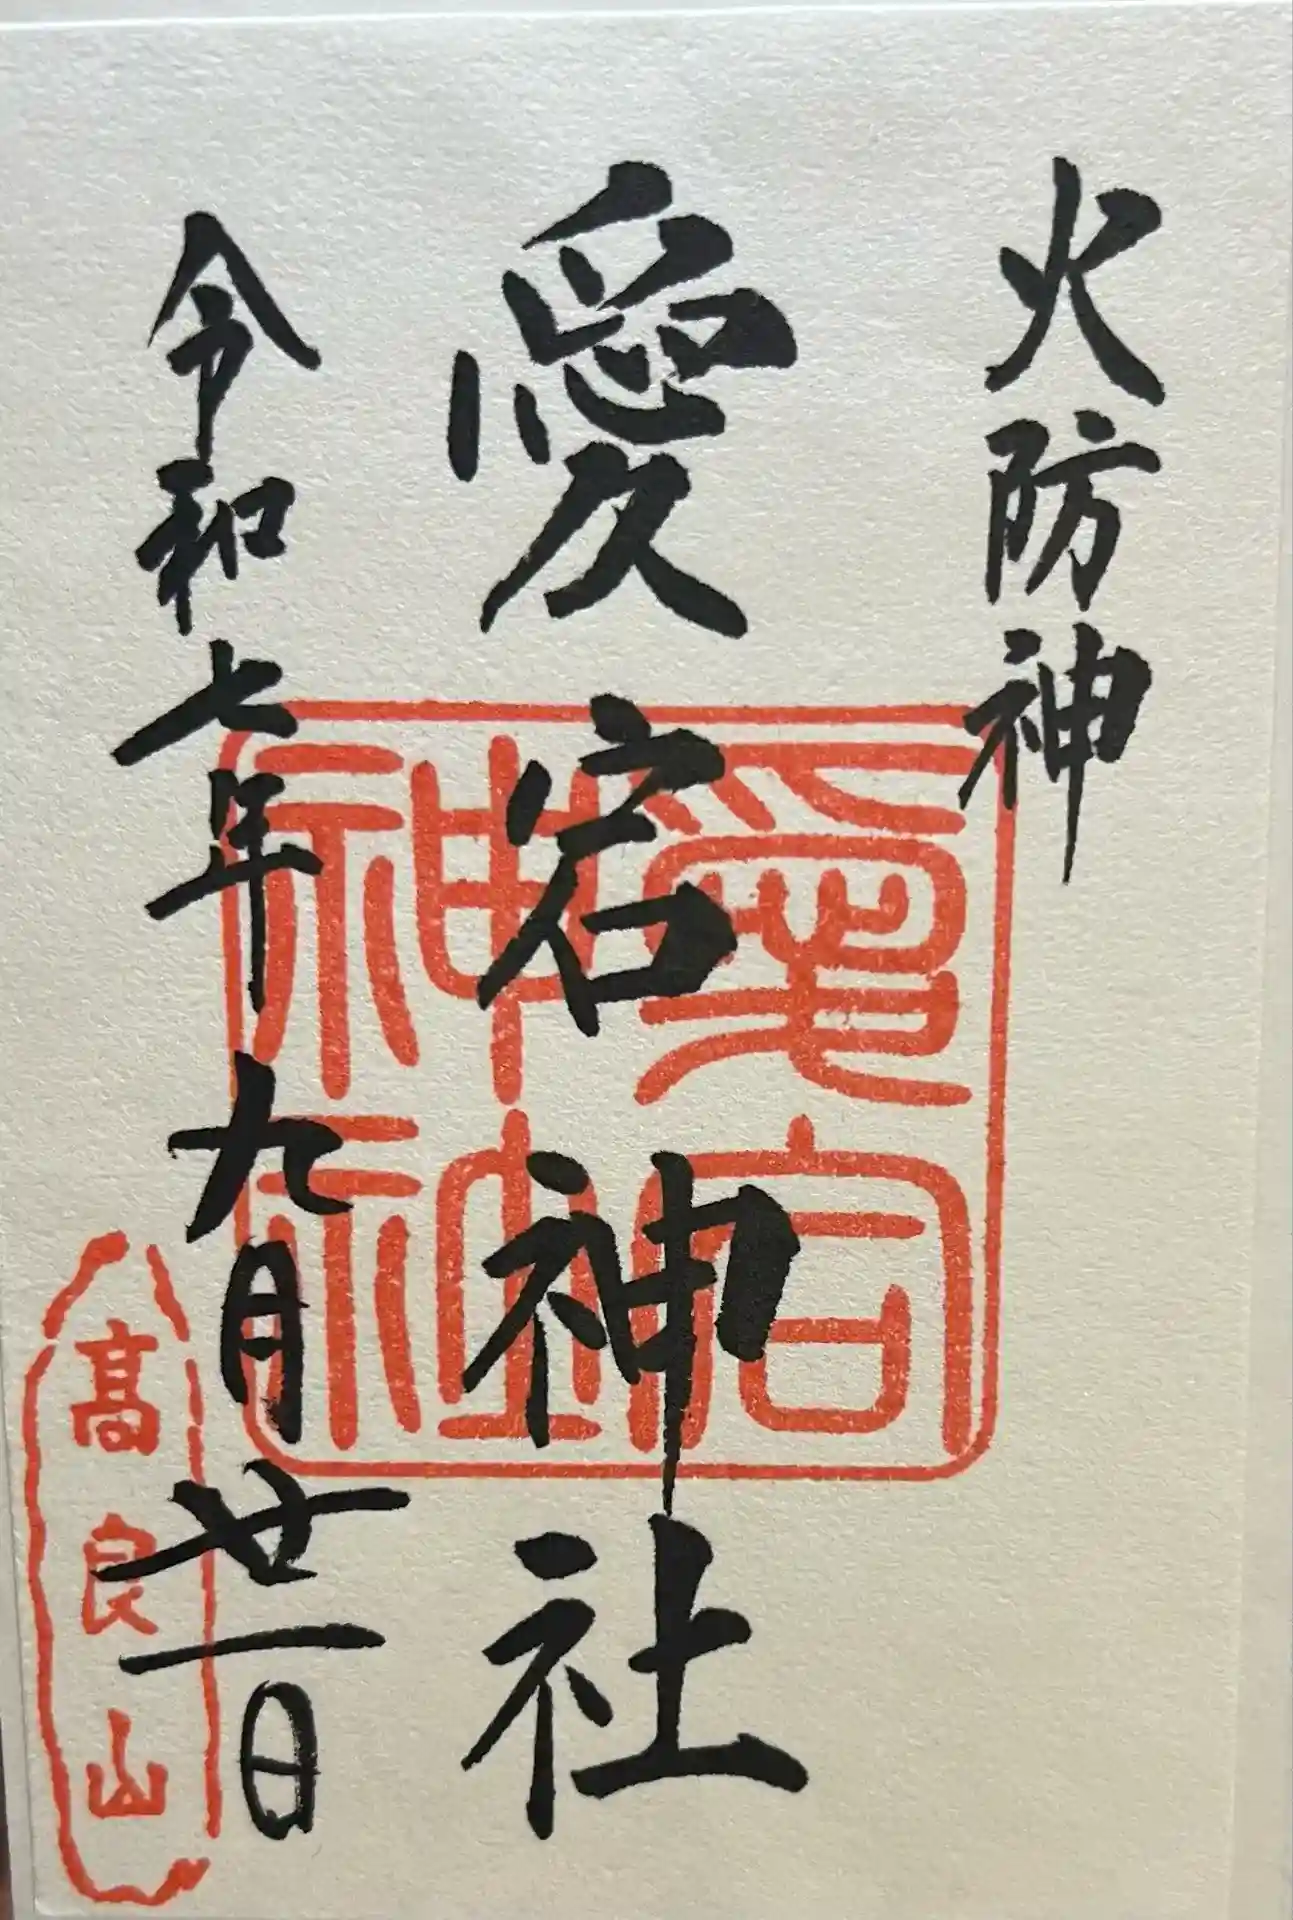 火防神
愛宕神社
令和七年九月廿一日
愛宕
神社
髙良山